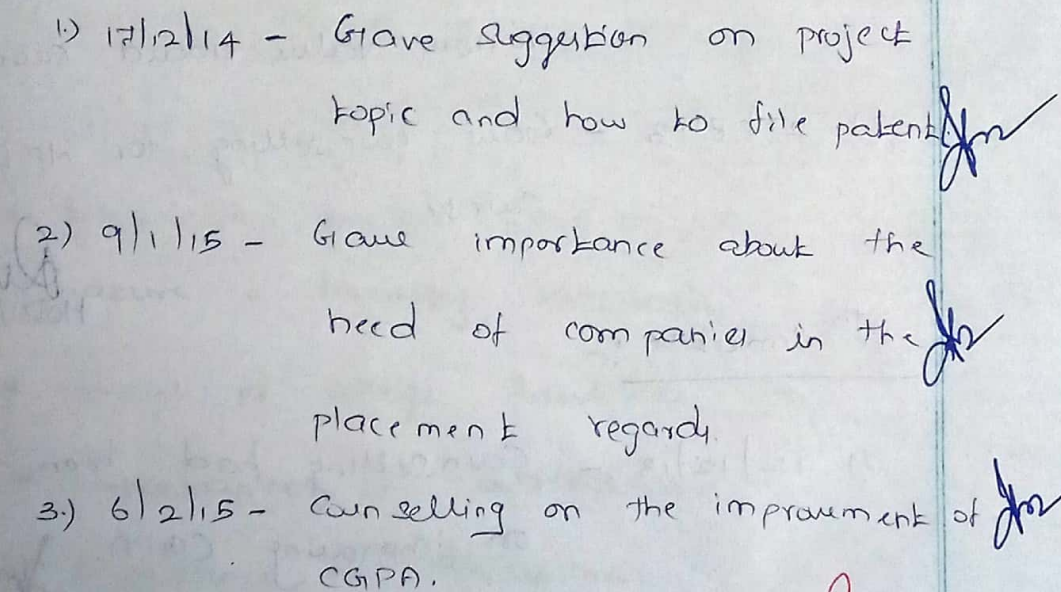 1.) 17/12/14 - Gave suggestion on project
topic and how to file patent.
2) 9/1/15 - Gave importance about the
need of companies in the
placement regards.
3.) 6/2/15 - Counselling on the improvement of
CGPA.